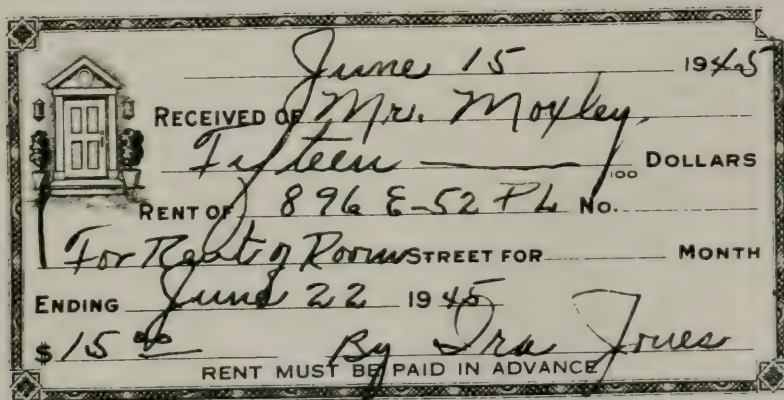 June 15 1945
RECEIVED OF Mr. Moxley,
Fifteen — /100 DOLLARS
RENT OF 896 E-52 PL No.
For Rent of Room STREET FOR MONTH
ENDING June 22 1945
$ 15 00 By Ira Jones
RENT MUST BE PAID IN ADVANCE